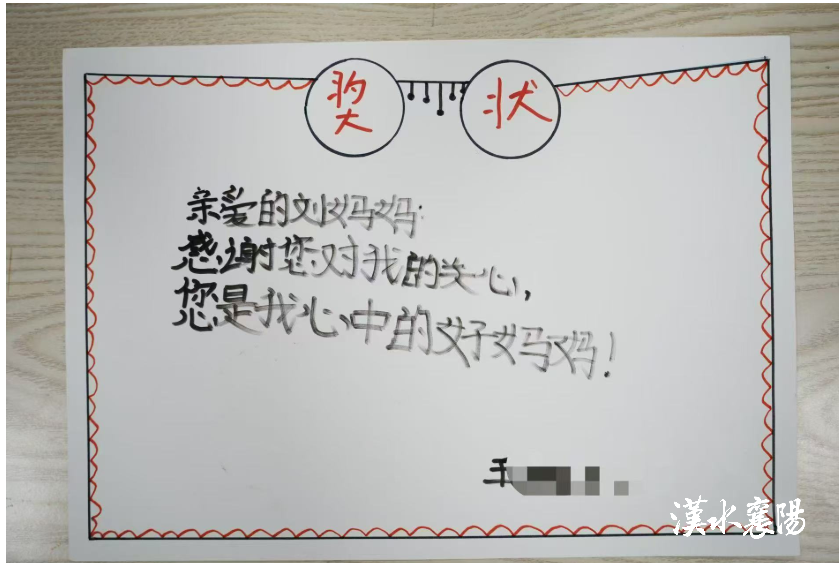 奖状
亲爱的刘妈妈:
感谢您对我的关心,
您是我心中的好妈妈!
王
漢水襄陽